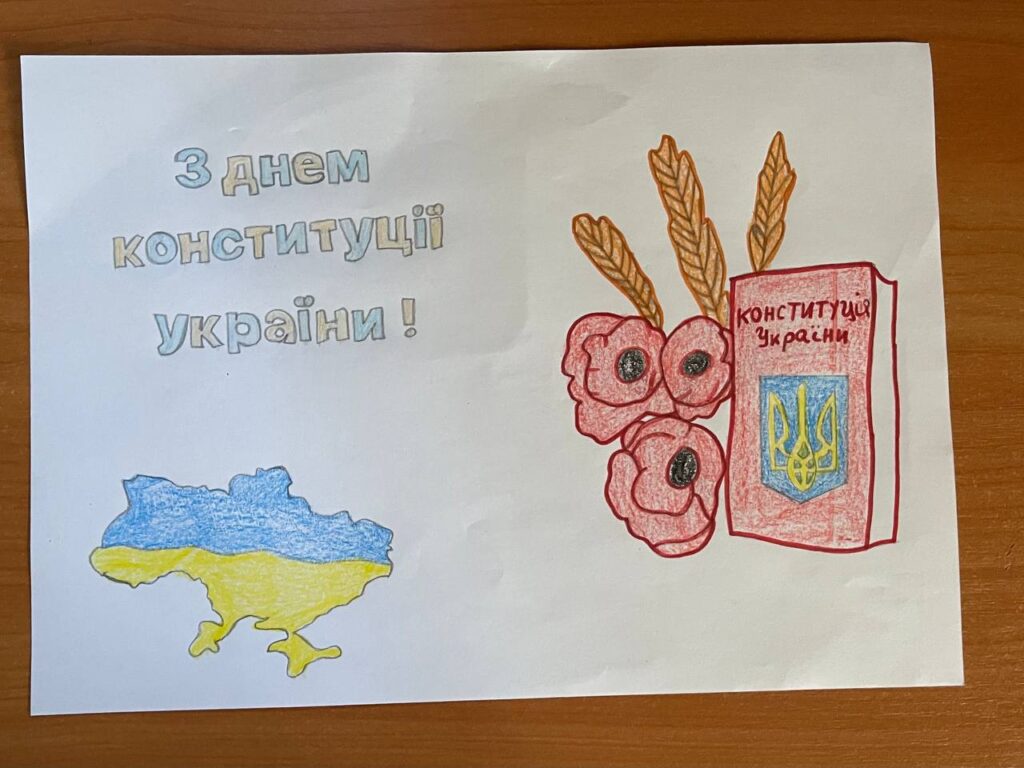 З днем
конституції
україни !
конституція
України